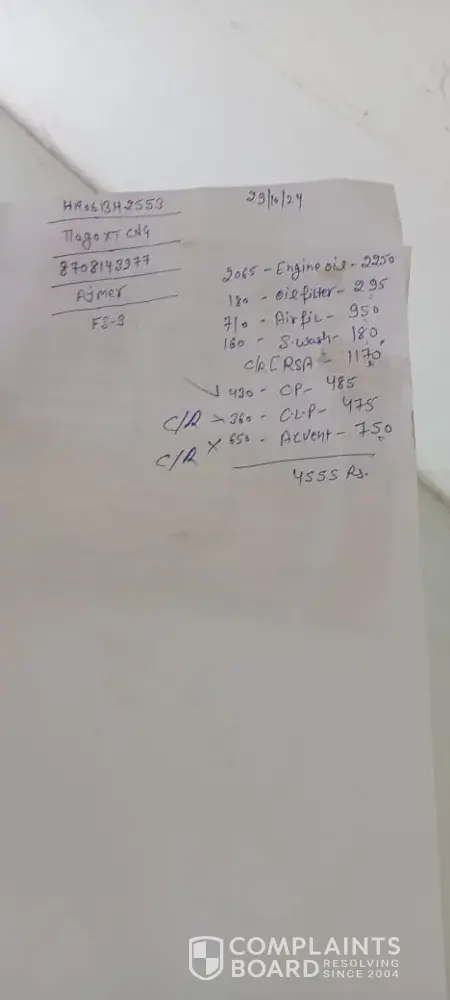 HR06BH2553
29/10/24
8708143977
Ajmer
F3-3
2065 - Engine oil - 2250
180 - oil filter - 295
710 - Air fil - 950
160 - S.wash - 180
C/R [RSA - 1170
430 - CP - 485
C/R × 360 - C.L.P - 475
C/R × 650 - ACvent - 750
4555 Rs.
COMPLAINTS
BOARD RESOLVING
SINCE 2004